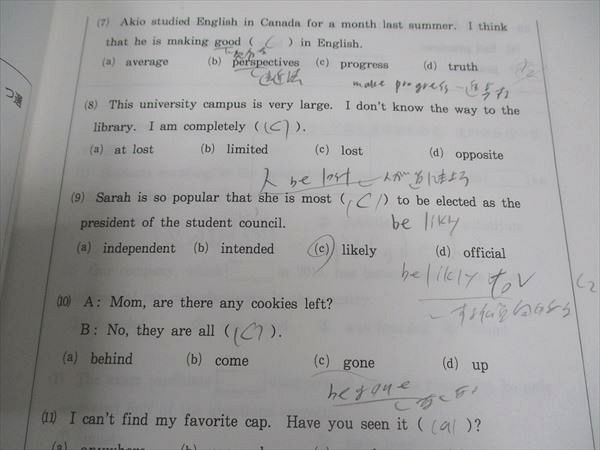 (7) Akio studied English in Canada for a month last summer. I think
that he is making good ( C ) in English.
(a) average (b) perspectives (c) progress (d) truth
make progress
(8) This university campus is very large. I don't know the way to the
library. I am completely ( (C) ).
(a) at lost (b) limited (c) lost (d) opposite
人 be lost 人が
(9) Sarah is so popular that she is most ( (C) ) to be elected as the
president of the student council.
be likly
(a) independent (b) intended (c) likely (d) official
be likly to V
(10) A: Mom, are there any cookies left?
B: No, they are all ( (C) ).
(a) behind (b) come (c) gone (d) up
be gone
(11) I can't find my favorite cap. Have you seen it ( (a) )?